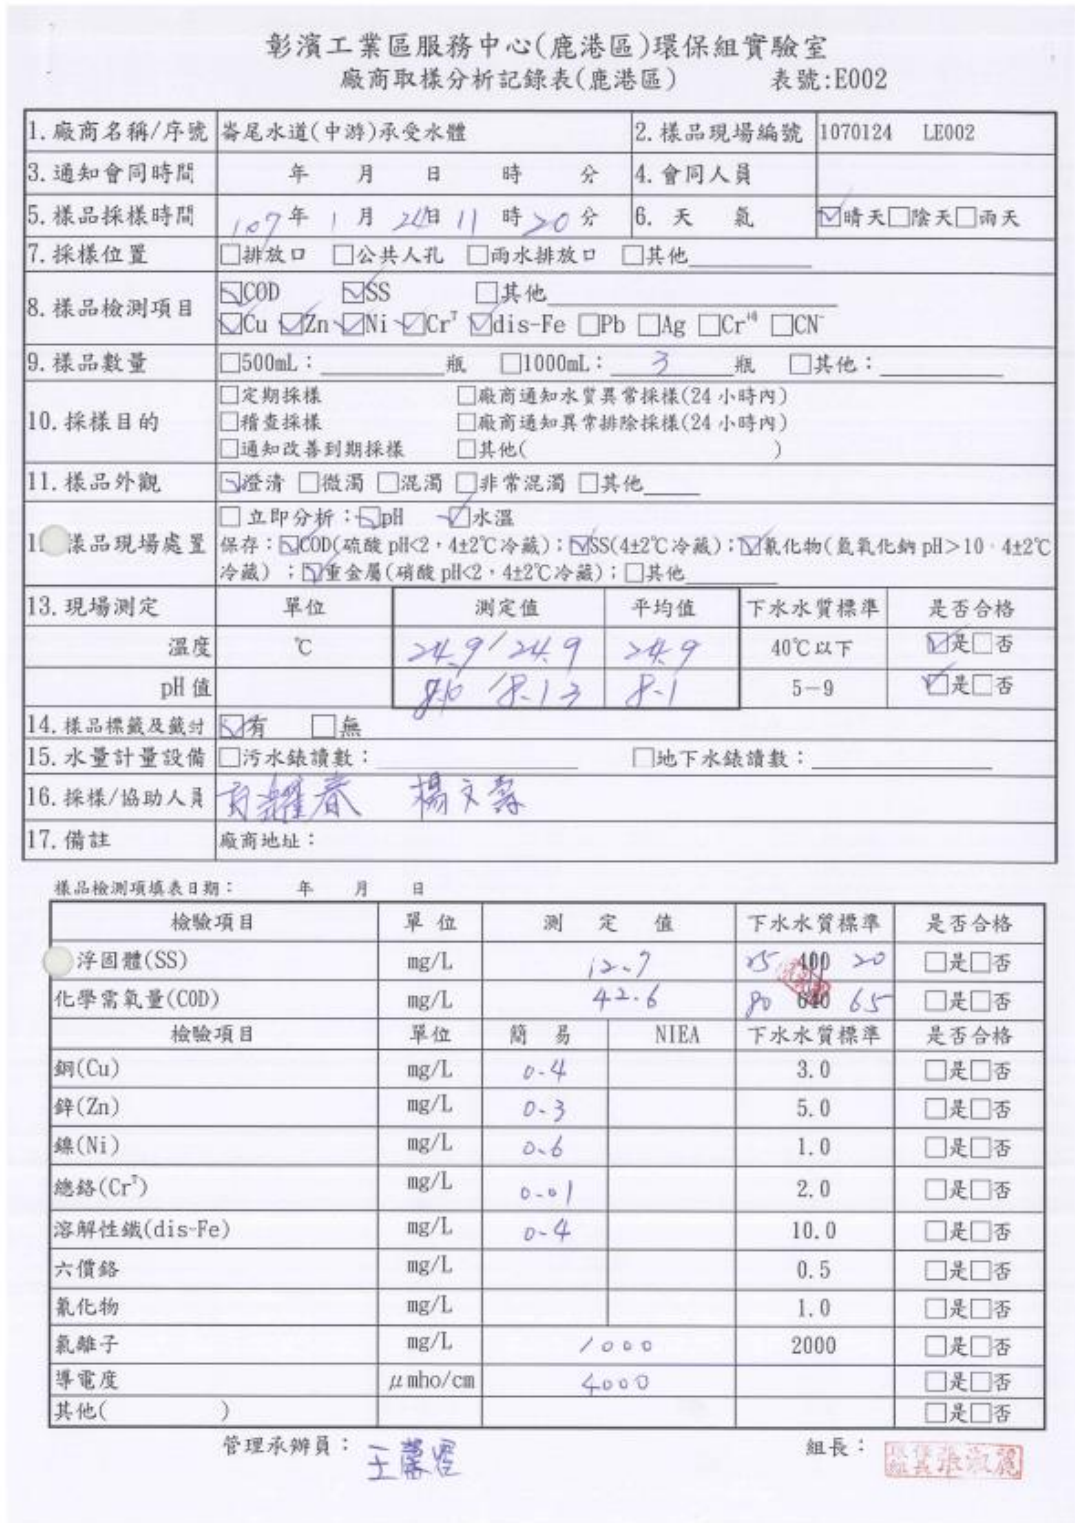 彰濱工業區服務中心(鹿港區)環保組實驗室
廠商取樣分析記錄表(鹿港區) 表號:E002
1.廠商名稱/序號 崙尾水道(中游)承受水體 2.樣品現場編號 1070124 LE002
3.通知會同時間 年 月 日 時 分 4.會同人員
5.樣品採樣時間 107年 1月 24日 11時20分 6. 天 氣 ☑晴天□陰天□雨天
7.採樣位置 □排放口 □公共人孔 □雨水排放口 □其他
8.樣品檢測項目 ☑COD ☑SS □其他
☑Cu ☑Zn ☑Ni ☑Crᵀ ☑dis-Fe □Pb □Ag □Cr⁺⁶ □CN⁻
9.樣品數量 □500mL： 瓶 □1000mL： 3 瓶 □其他：
10.採樣目的 □定期採樣 □廠商通知水質異常採樣(24小時內)
□稽查採樣 □廠商通知異常排除採樣(24小時內)
□通知改善到期採樣 □其他( )
11.樣品外觀 ☑澄清 □微濁 □混濁 □非常混濁 □其他
□立即分析：☑pH ☑水溫
樣品現場處置 保存：☑COD(硫酸 pH<2，4±2℃冷藏)；☑SS(4±2℃冷藏)；☑氰化物(氫氧化鈉 pH>10，4±2℃
冷藏)；☑重金屬(硝酸 pH<2，4±2℃冷藏)；□其他
13.現場測定 單位 測定值 平均值 下水水質標準 是否合格
溫度 ℃ 24.9/24.9 24.9 40℃以下 ☑是□否
pH值 8.10/8.13 8.1 5-9 ☑是□否
14.樣品標籤及籤封 ☑有 □無
15.水量計量設備 □污水錶讀數： □地下水錶讀數：
16.採樣/協助人員 楊文壽
17.備註 廠商地址：
樣品檢測項填表日期： 年 月 日
檢驗項目 單位 測定值 下水水質標準 是否合格
浮固體(SS) mg/L 12.7 25 400 20 □是□否
化學需氧量(COD) mg/L 42.6 80 640 65 □是□否
檢驗項目 單位 簡易 NIEA 下水水質標準 是否合格
銅(Cu) mg/L 0.4 3.0 □是□否
鋅(Zn) mg/L 0.3 5.0 □是□否
鎳(Ni) mg/L 0.6 1.0 □是□否
總鉻(Crᵀ) mg/L 0.01 2.0 □是□否
溶解性鐵(dis-Fe) mg/L 0.4 10.0 □是□否
六價鉻 mg/L 0.5 □是□否
氰化物 mg/L 1.0 □是□否
氯離子 mg/L 1000 2000 □是□否
導電度 μmho/cm 4000 □是□否
其他( ) □是□否
管理承辦員： 組長： 張淑麗